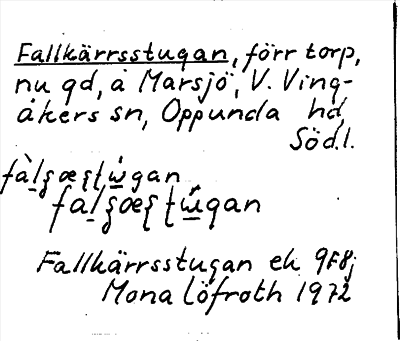 Fallkärrsstugan, förr torp,
nu gd, å Marsjö, V. Ving-
åkers sn, Oppunda hd,
Södl.
Fallkärrsstugan ek 9F8j
Mona Löfroth 1972